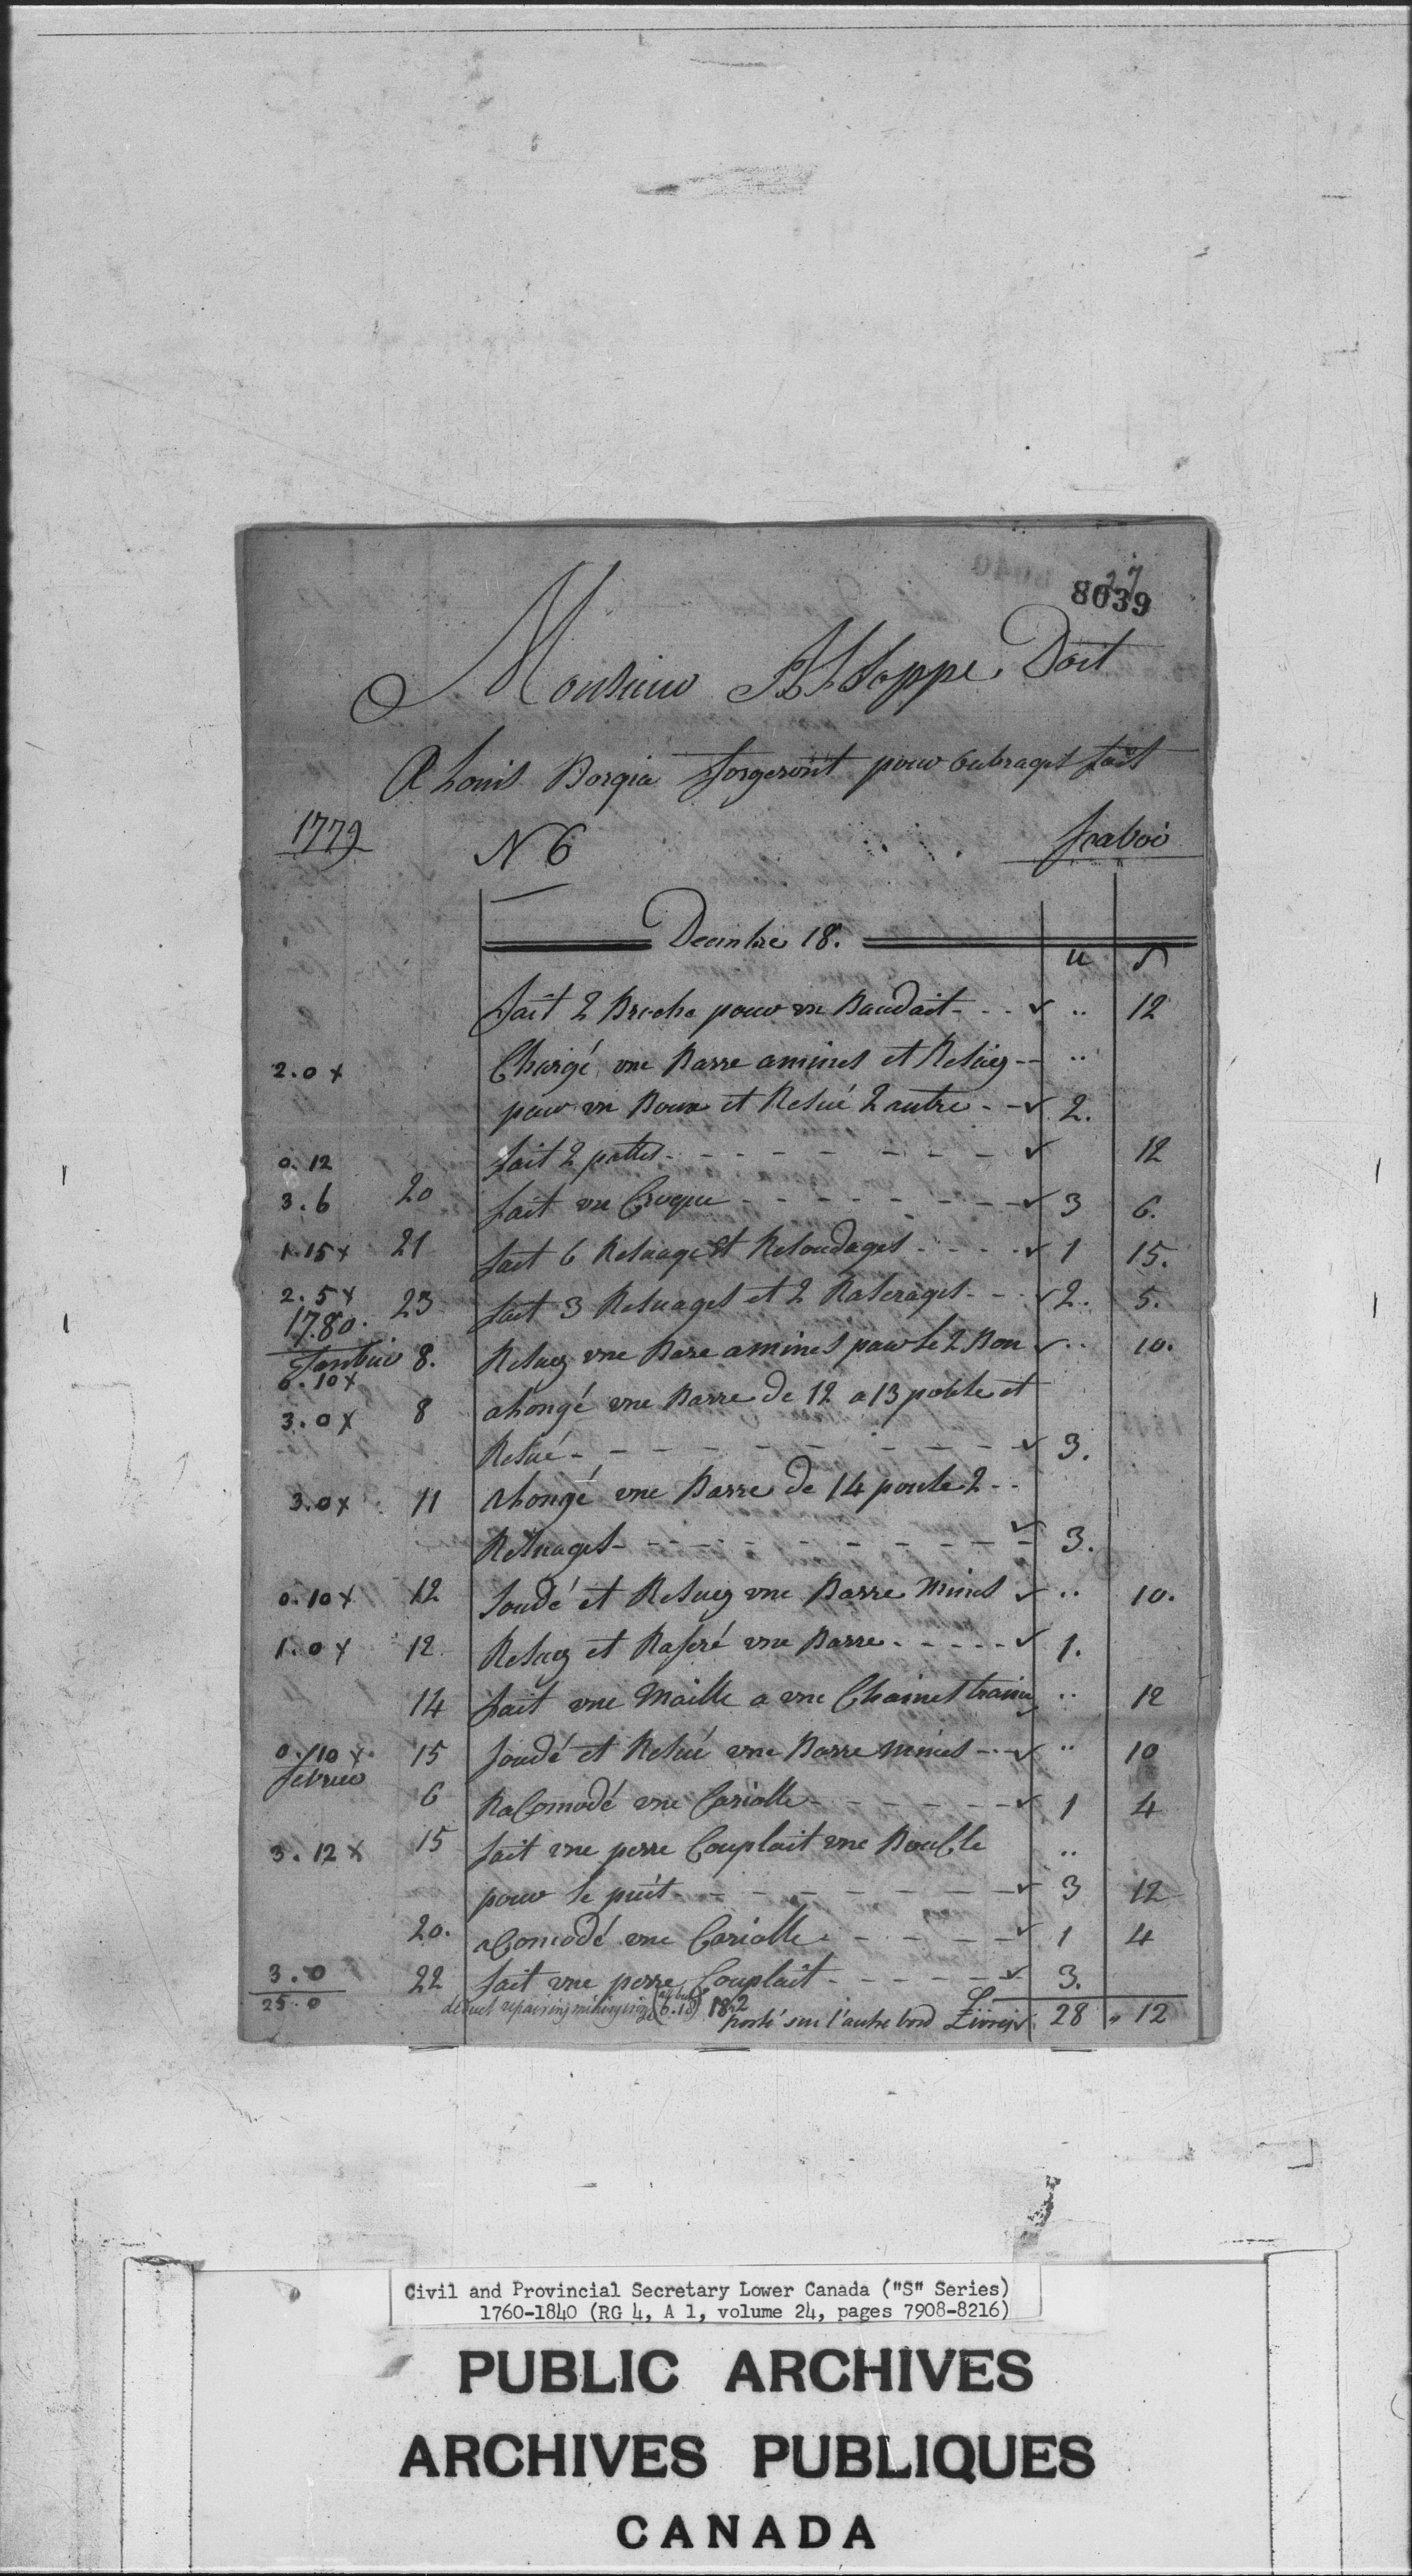 8039
27
Monsieur Allsoppe Doit
A Louis Borgia forgeront pour oubrages fait
1779 N 6 Scavoir
Decembre 18.
tt s
fait 2 Broche pour un Baudait - - - ✓ .. 12
2.0 x Chargé une Barre amines et Resuez - - ..
pour un Boure et Resué 2 autre - - ✓ 2.
0.12 fait 2 pattes - - - - - - - ✓ 12
3.6 20 fait un Croque - - - - - - - ✓ 3 6.
1.15 x 21 fait 6 Resuage et Resoudages - - - - ✓ 1 15.
2.5 x 23 fait 3 Resuages et 2 Raserages - - ✓ 2. 5.
1780.
Janbier 8. Resuez une Bare amines pour le 2 Bon ✓ .. 10.
0.10 x
3.0 x 8 alongé une Barre de 12 a 13 pouhe et
Resué - - - - - - - - - ✓ 3.
3.0 x 11 alongé une Barre de 14 pouhe 2 - -
Resuages - - - - - - - - - ✓ 3.
0.10 x 12 Soudé et Resuez une Barre Mines ✓ .. 10.
1.0 x 12 Resuez et Raseré une Barre - - - - - ✓ 1.
14 fait une Maille a une Chaines .. 12
0.10 x 15 Soudé et Resué une Barre mines - - ✓ .. 10
febrier
6 RaComodé une Cariolle - - - - - - - ✓ 1 4
3.12 x 15 fait une perre Couplait une Boucle ..
pour le puit - - - - - - - ✓ 3 12
20. aComodé une Cariolle - - - - - ✓ 1 4
3.0 22 fait une perre Couplait - - - - - ✓ 3.
25.0 deduct repairing &c 18.2
porté sur l'autre bord Livres ✓ 28 " 12
Civil and Provincial Secretary Lower Canada ("S" Series)
1760-1840 (RG 4, A 1, volume 24, pages 7908-8216)
PUBLIC ARCHIVES
ARCHIVES PUBLIQUES
CANADA